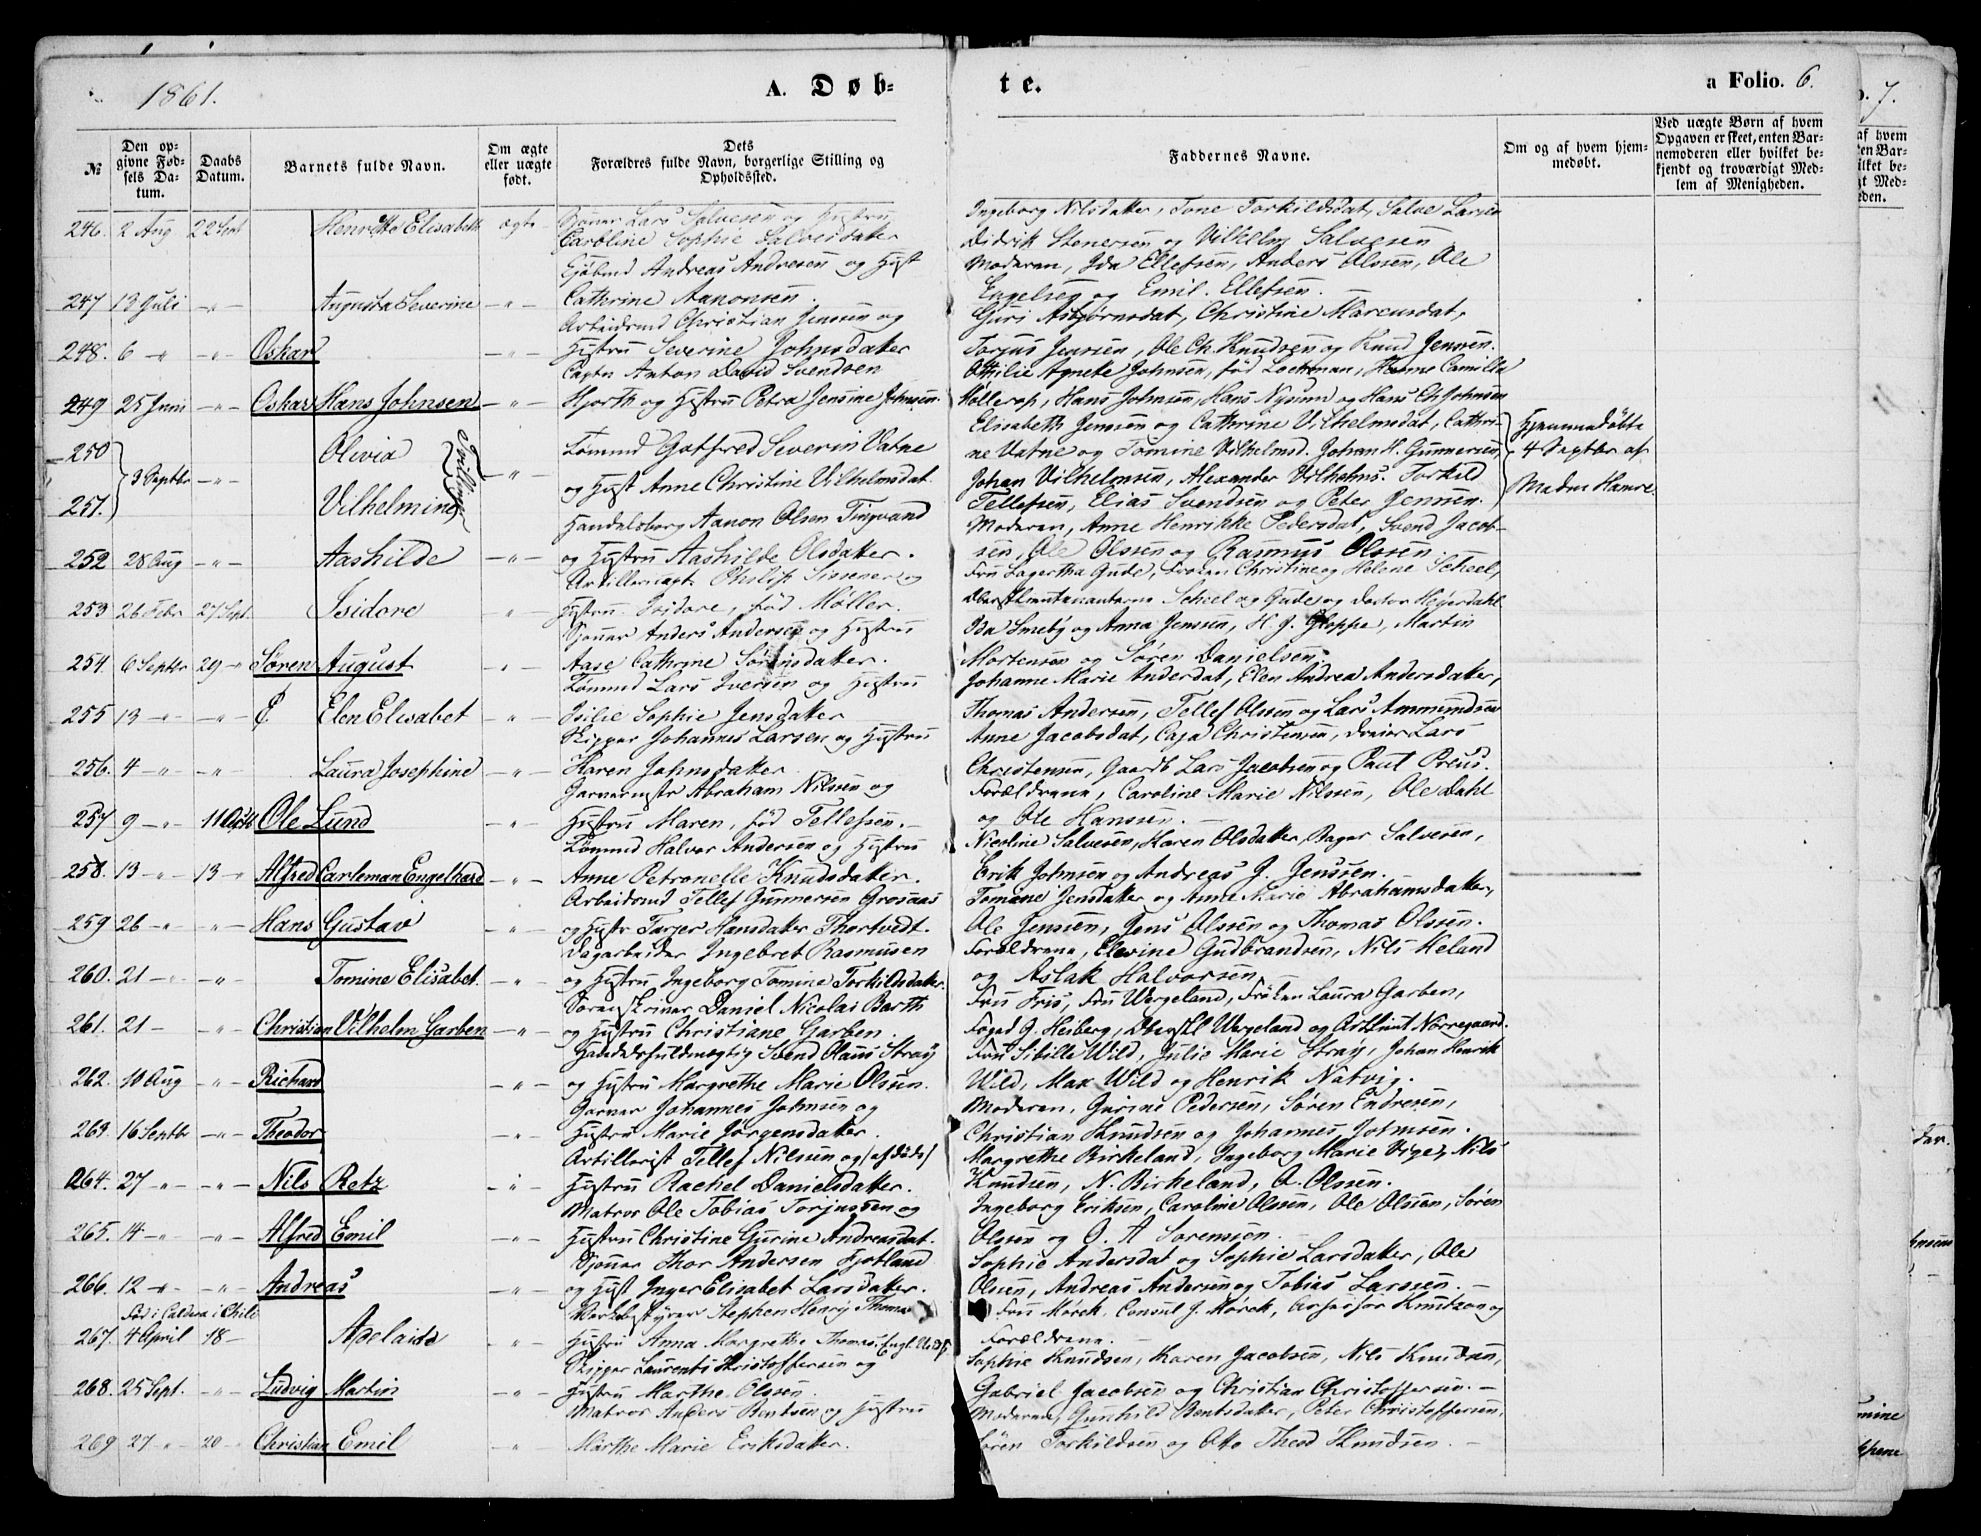 1861.
A. Døb-
te.
a Folio. 6.
7.
№
Den op-
givne Fød-
sels Da-
tum.
Daabs
Datum.
Barnets fulde Navn.
Om ægte
eller uægte
født.
Dets
Forældres fulde Navn, borgerlige Stilling og
Opholdssted.
Faddernes Navne.
Om og af hvem hjem-
medøbt.
Ved uægte Børn af hvem
Opgaven er skeet, enten Bar-
nemoderen eller hvilket be-
kjendt og troværdigt Med-
lem af Menigheden.
246. 2 Aug 22 Sept Henriette Elisabeth ægte
Sjømar Lars Salvesen og Hustru
Caroline Sophie Salvesdatter
Ingeborg Nilsdatter, Tone Torkildsdat, Salve Larsen
Didrik Stenersen og Vilhelm Salvesen
247 13 Juli -"- Augusta Severine -"-
Ejøbmd Andreas Andresen og Hust
Cathrine Aanonsen.
Moderen, Ida Ellefsen, Anders Olssen, Ole
Engelsen og Emil. Ellefsen.
248. 6 -"- -"- Oskar -"-
Arbeidsmd Christian Jenssen og
Hustru Severine Johnsdatter
Guri Asbjørnsdat, Christine Marcusdat,
Torjus Jenssen, Ole Ch. Knudsen og Knud Jenssen.
249 25 Juni -"- Oskar Hans Johnsen -"-
Captn Anton David Svendsen
Hjorth og Hustru Petra Jensine Johnsen.
Othilie Agnete Johnsen, fød Lochman, Hanne Camilla
Møllerop, Hans Johnsen, Hans Nysum og Hans Ch Johnsen
250 Olivia
251. Vilhelmine
3 Septbr -"- Tvillinger -"-
Tømmd Gotfred Severin Vatne
og Hust Anne Christine Vilhelmsdat.
Elisabeth Jenssen og Cathrine Vilhelmsdat, Cathri-
ne Vatne og Tomine Vilhelmsd. Johan H. Gunnersen,
Johan Vilhelmsen, Alexander Vilhelms. Torkild
Tellefsen, Elias Svendsen og Peter Jenssen.
Hjemmedøbte
4 Septbr af
Madm Hamre.
252 28 Aug -"- Aashilde -"-
Handelsborg Aanon Olsen Tingvand
og Hustru Aashilde Olsdatter.
Moderen, Anne Henrikke Pedersdat, Svend Jacob-
sen, Ole Olssen og Rasmus Olssen
253 26 Febr 27 Sept. Isidore "
Artillericapt Philip Sissener og
Hustru Isidore, fød Møller.
Fru Lagertha Gude, Frøken Christine og Helene Scheel,
Oberstlieutenanterne Scheel og Gude og Doctor Heyerdahl
254. 6 Septbr 29 -"- Søren August -"-
Sjømar Anders Andersen og Hustru
Aase Cathrine Sørensdatter.
Ida Smeby og Anna Jenssen, H. J. Gloppe, Martin
Mortensen og Søren Danielsen.
255 13 -"- -"- Elen Elisabet -"-
Tømmd Lars Iversen og Hustru
Isilie Sophie Jensdatter
Johanne Marie Andersdat, Elen Andrea Andersdatter,
Thomas Andersen, Tellef Olsen og Lars Ammundsen
256. 4 -"- -"- Laura Josephine -"-
Skipper Johannes Larsen og Hustru
Karen Johnsdatter
Anne Jacobsdat, Caja Christensen, Dreier Lars
Christensen, Gaardb Lars Jacobsen og Paul Preus.
257 9 -"- 11 Octb Ole Lund -"-
Garvermstr Abraham Nilsen og
Hustru Maren, fød Tellefsen.
Forældrene, Caroline Marie Nilssen, Ole Dahl
og Ole Hanssen.
258. 13 -"- 13 -"- Alfred Carleman Engelhard -"-
Tømmd Halvor Andersen og Hustru
Anne Petronelle Knudsdatter.
Nicoline Salvesen, Karen Olsdatter, Bager Salvesen,
Erik Johnsen og Andreas J. Jenssen.
259 26 -"- -"- Hans Gustav -"-
Arbeidsmd Tellef Gunnersen Grosaas
og Hustr Torjer Hansdatter Thortvedt.
Tomine Jensdatter og Anne Marie Abrahamsdatter,
Ole Jenssen, Jens Olssen og Thomas Olssen.
260. 21 -"- -"- Tomine Elisabet. -"-
Dagarbeider Ingebret Rasmusen
og Hustru Ingeborg Tomine Torkildsdatter.
Forældrene, Elevine Gudbrandsen, Nils Heland
og Aslak Halvorsen
261. 21 - -"- Christian Vilhelm Garben -"-
Sorenskriver Daniel Nicolai Barth
og Hustru Christiane Garben.
Fru Fris, Fru Wergeland, Frøken Laura Garben,
Foged G. Heiberg, Oberstl Wergeland og Art Lieut Nørregaard.
262. 10 Aug -"- Richard -"-
Handelsfuldmægtig Svend Olaus Stray
og Hustru Margrethe Marie Olsen.
Fru Sibille Wild, Julie Marie Stray, Johan Henrik
Wild, Max Wild og Henrik Natvig.
263. 16 Septbr -"- Theodor -"-
Garver Johannes Johnsen og
Hustru Marie Jørgensdatter.
Moderen, Gurine Pedersen, Søren Endresen,
Christian Knudsen og Johannes Johnsen.
264. 27 -"- -"- Nils Retz -"-
Artillerist Tellef Nilssen og (afdøde)
Hustru Rachel Danielsdatter.
Margrethe Birkeland, Ingeborg Marie Vige, Nils
Knudsen, N. Birkeland, O. Olssen.
265. 14 -"- -"- Alfred Emil -"-
Matros Ole Tobias Torjussen og
Hustru Christine Gurine Andreasdat.
Ingeborg Eriksen, Caroline Olssen, Ole Olssen, Søren
Olssen og O. A Sørensen.
266. 12 -"- -"- Andreas -"-
Sjømar Thor Andersen Fjotland
og Hust Inger Elisabet Larsdatter.
Sophie Andersdat og Sophie Larsdatter, Ole
Olsen, Andreas Andersen og Tobias Larssen.
Fød i Caldera i Chili
267. 4 April 18 - Adelaide "
Værksbestyrer Stephen Henry Thomas
Hustru Anna Margrethe Thomas.
Fru Mørck, Consul J. Mørck, Assessor Knutzon og
Forældrene.
268. 25 Sept. -"- Ludvig Martin -"-
Skipper Laurents Kristoffersen og
Hustru Marthe Olssen.
Sophie Knudsen, Karen Jacobsen, Nils Knudsen,
Gabriel Jacobsen og Christian Christoffersen.
269 27 -"- 20 -"- Christian Emil "
Matros Anders Bentsen og Hustru
Marthe Marie Eriksdatter.
Moderen, Gunhild Bentsdatter, Peter Christoffersen,
Søren Torkildsen og Otto Theod Knudsen.